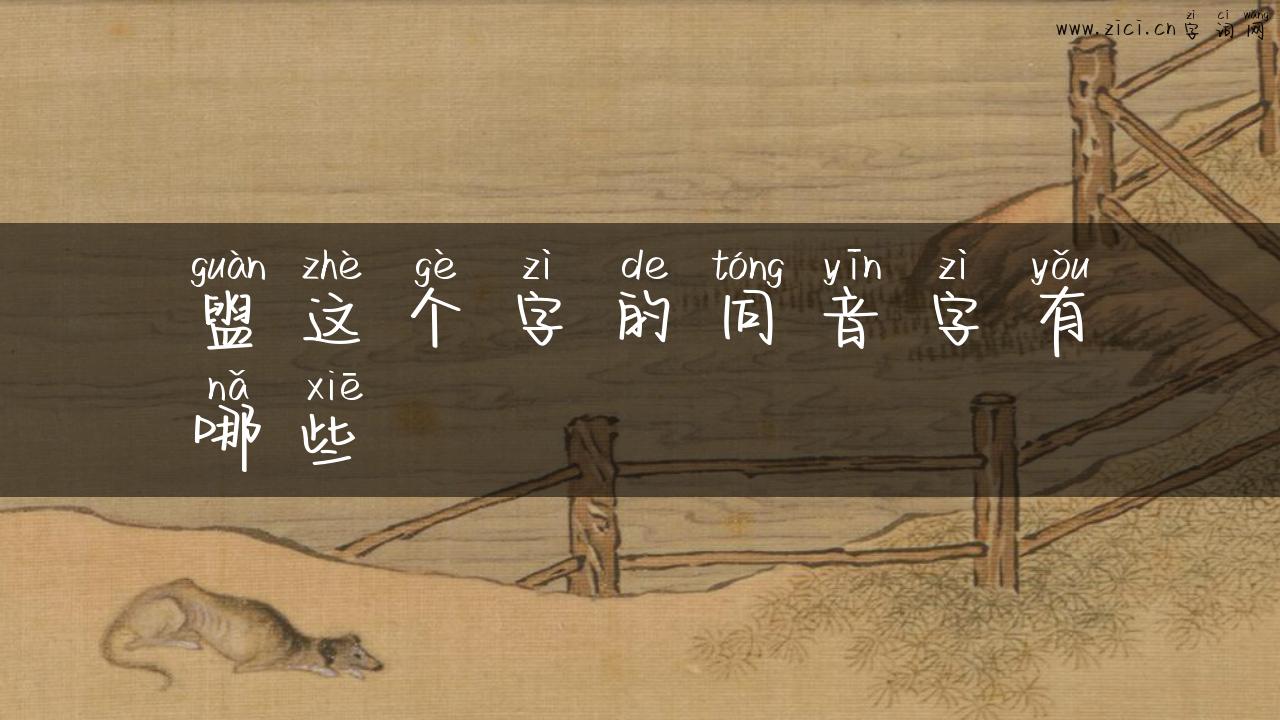 zì cí wǎng
www.zici.cn 字词网
guàn zhè gè zì de tóng yīn zì yǒu
盥这个字的同音字有
nǎ xiē
哪些